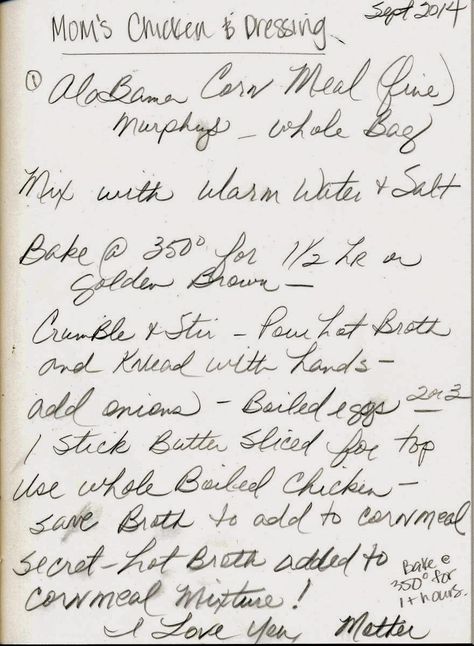 Sept 2014
Mom's Chicken & Dressing
① Alabama Corn Meal (fine)
Murphys - whole Bag
Mix with warm Water & Salt
Bake @ 350° for 1 1/2 hr or
golden Brown -
Crumble & Stir - Pour hot Broth
and Knead with hands -
add onions - Boiled eggs 2 or 3
1 Stick Butter Sliced for top
Use whole Boiled Chicken -
save Broth to add to cornmeal
secret - hot Broth added to
cornmeal Mixture!
Bake @
350° for
1+ hours.
I Love You, Mother